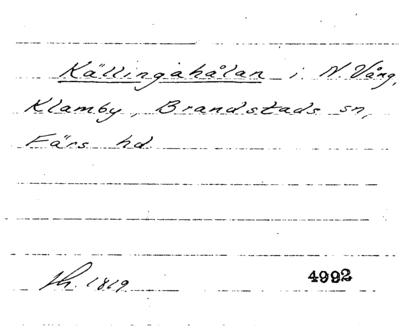 Källingahålan i N. Vång,
Klamby, Brandstads sn,
Färs hd
1819 4992